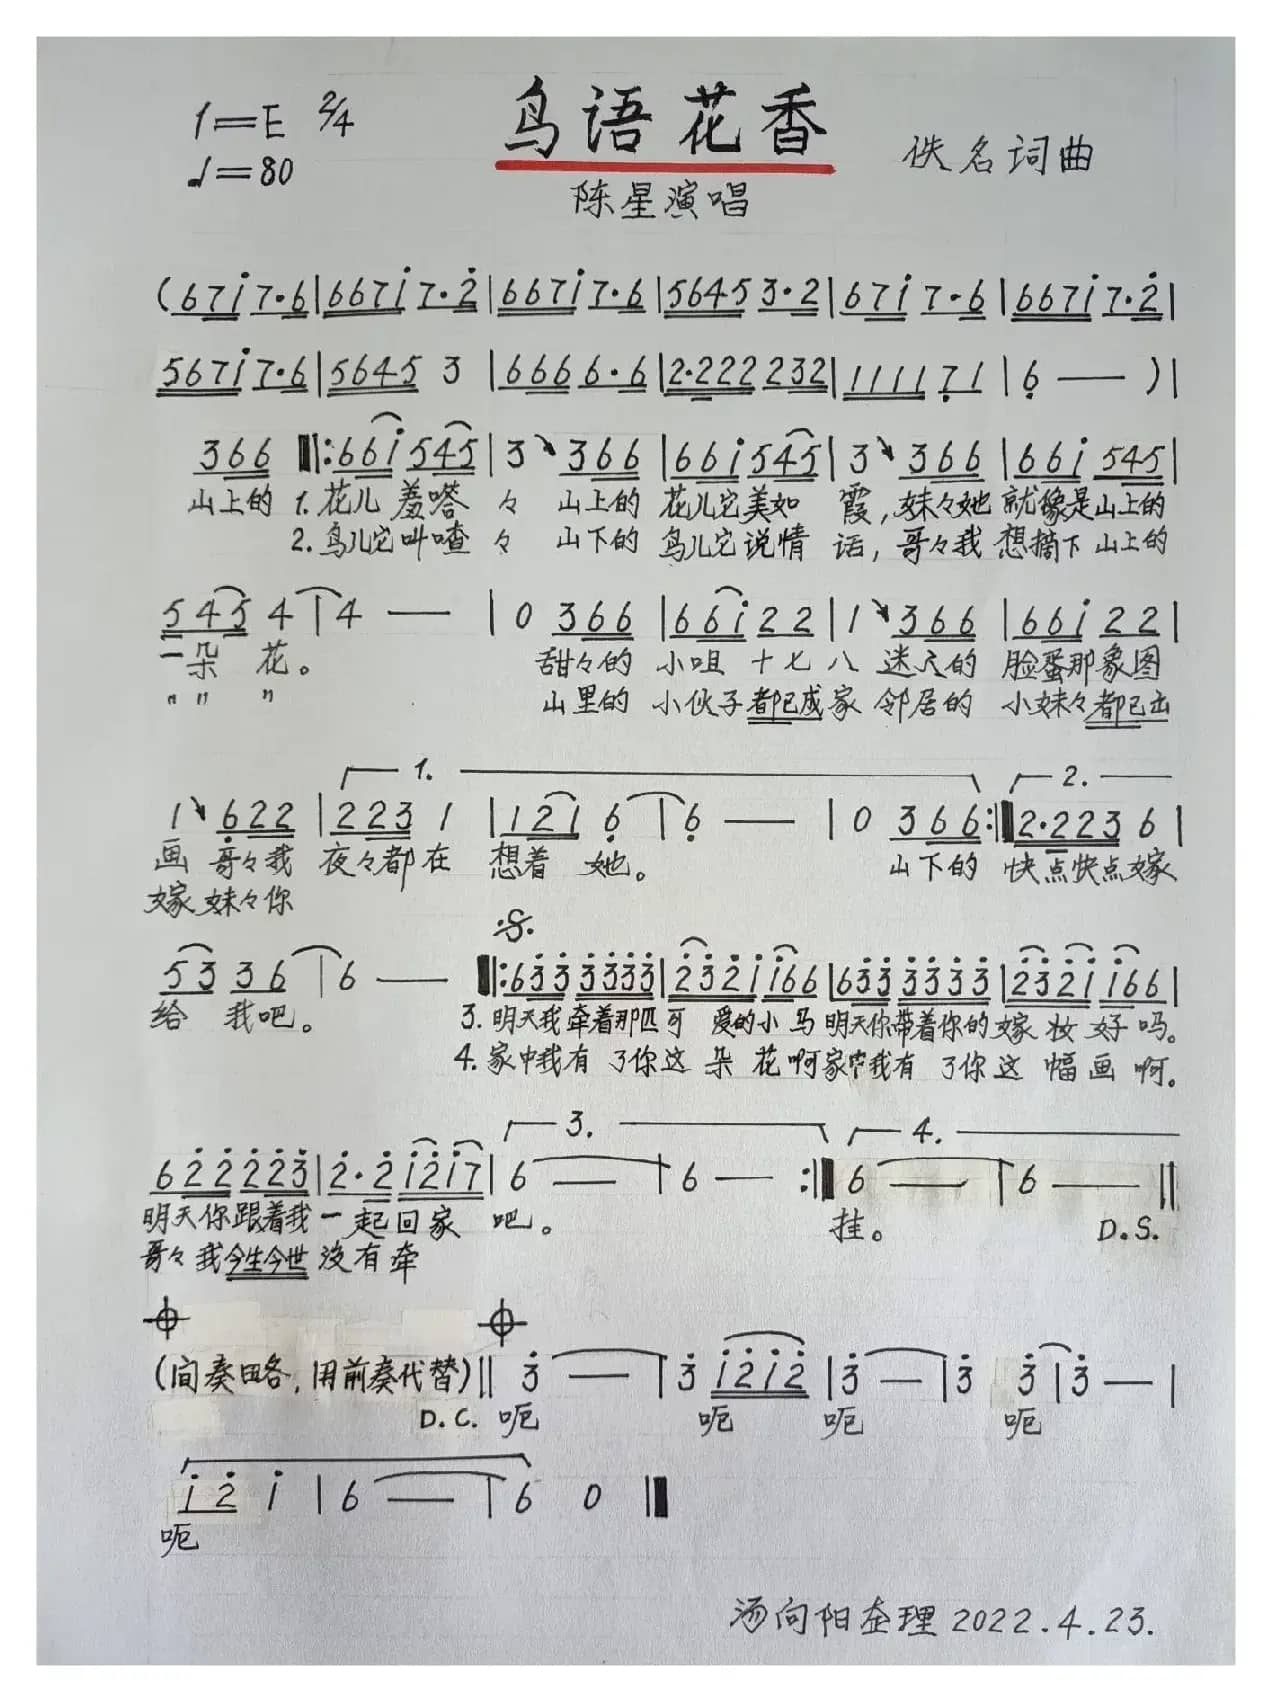 1=E 2/4 鸟语花香 佚名词曲
♩=80 陈星演唱
(67i 7·6|667i 7·2|667i 7·6|5645 3·2|67i 7·6|667i 7·2|
567i 7·6|5645 3|6666·6|2·222 232|1111 71|6 — )|
366 ‖:66i 545|3 366|66i 545|3 366|66i 545|
山上的 1.花儿 羞嗒 々 山上的 花儿它美如 霞,妹々她 就像是山上的
2.鸟儿它叫喳 々 山下的 鸟儿它说情 话,哥々我 想摘下 山上的
545 4|4 — |0 366|66i 22|1 366|66i 22|
一朵 花。 甜々的 小咀 十七 八 迷人的 脸蛋那象图
〃 〃 〃 山里的 小伙子都已成家 邻居的 小妹々都已出
1. 2.
1 622|223 1|121 6|6 — |0 366:‖2·223 6|
画 哥々我 夜々都在 想着 她。 山下的 快点快点嫁
嫁 妹々你
𝄋
53 36|6 — ‖:633 3333|232i i66|633 3333|232i i66|
给 我吧。 3.明天我牵着那匹可 爱的小 马 明天你带着你的嫁 妆 好 吗。
4.家中我有 了你这 朵 花啊家中我有 了你这 幅 画 啊。
3. 4.
622 223|2·2 i2i7|6 — |6 — :‖6 — |6 — ‖
明天你跟着我 一起回家 吧。 挂。 D.S.
哥々我今生今世 没有牵
𝄌 𝄌
(间奏略,用前奏代替)‖3 — |3 i2i2|3 — |3 3|3 — |
D.C. 呃 呃 呃 呃
i2 i|6 — |6 0‖
呃
汤向阳整理 2022.4.23.